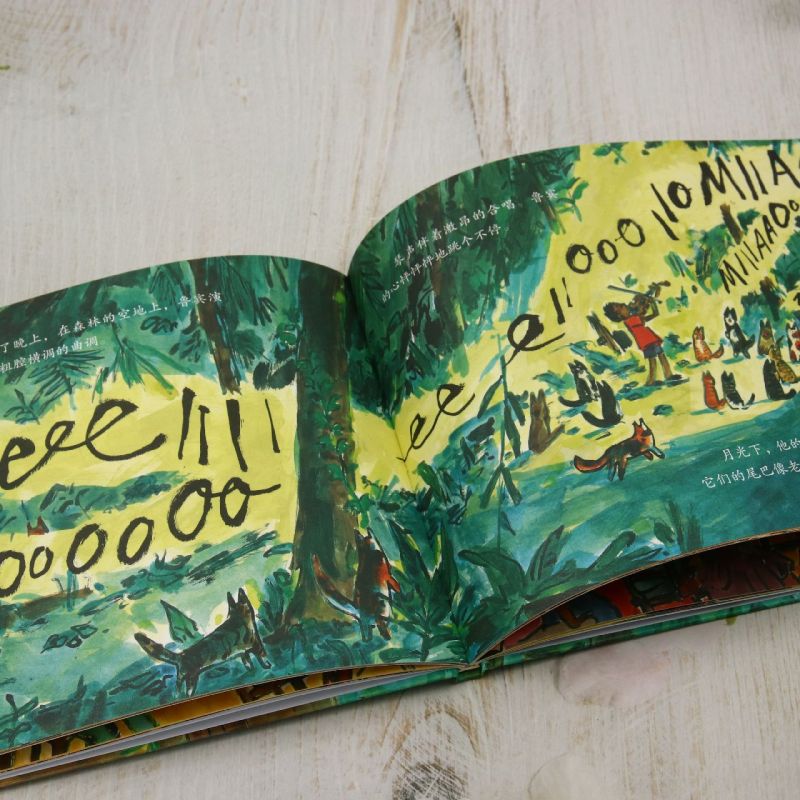 了晚上，在森林的空地上，鲁宾演
粗腔横调的曲调
eeelllll
ooooooo
琴声伴着激昂的合唱，鲁宾
的心怦怦怦地跳个不停
ee e ell ooo lloMIIAO
MIIAAOo
月光下，他的
它们的尾巴像老